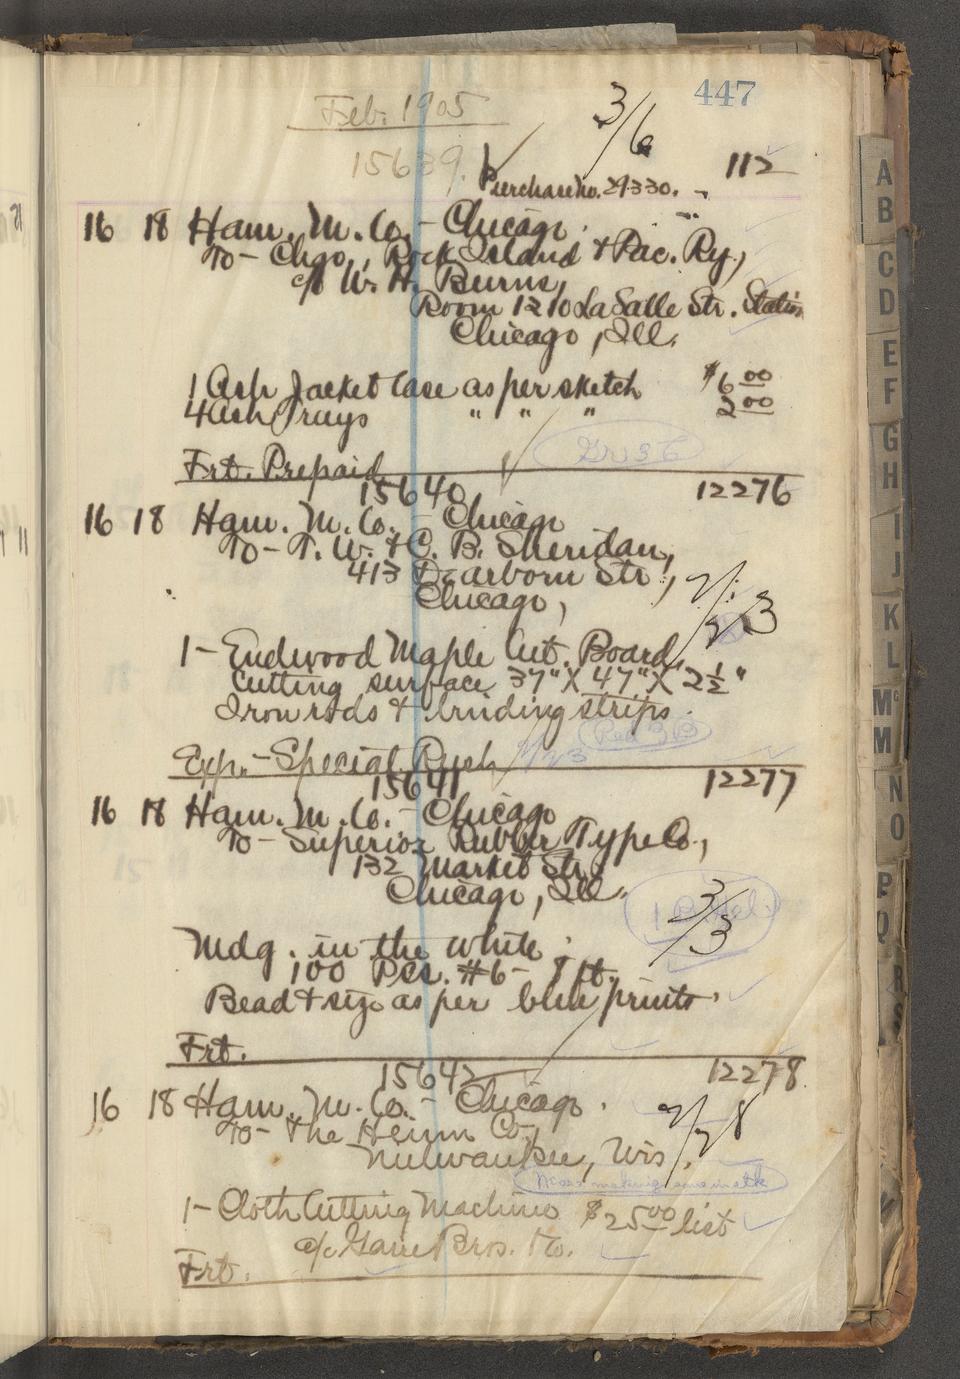 447
Feb. 1905
3/6
15639.
112
Purchase no. 29330.
16 18 Ham. M. Co. - Chicago.
To - Chgo., Rock Island & Pac. Ry.,
c/o W. H. Burns,
Room 1210 LaSalle Str. Station
Chicago, Ill.
1 Ash Jacket Case as per sketch $6 00
4 Ash Trays " " " 2 00
Frt. Prepaid
15640 12276
16 18 Ham. M. Co. - Chicago
To - T. W. & C. B. Sheridan,
413 Dearborn Str.,
Chicago,
2/23
1 - Endwood Maple Cut. Board,
Cutting surface 37" X 47" X 2 1/2"
Iron rods & binding strips.
2/23
Exp. - Special Rush
15641 12277
16 18 Ham. M. Co. - Chicago
To - Superior Rubber Type Co.,
132 Market Str.
Chicago, Ill.
3/3
Mdg. in the white:
100 Pcs. #6 - 8 ft.
Bead & size as per blue prints.
Frt.
15642 12278
16 18 Ham. M. Co. - Chicago.
2/28
To - The Heinn Co.,
Milwaukee, Wis.
1 - Cloth Cutting Machine $25 00 list
c/o Gane Bros. & Co.
Frt.
A
B
C
D
E
F
G
H
I
J
K
L
Mc
M
N
O
P
Q
R
S